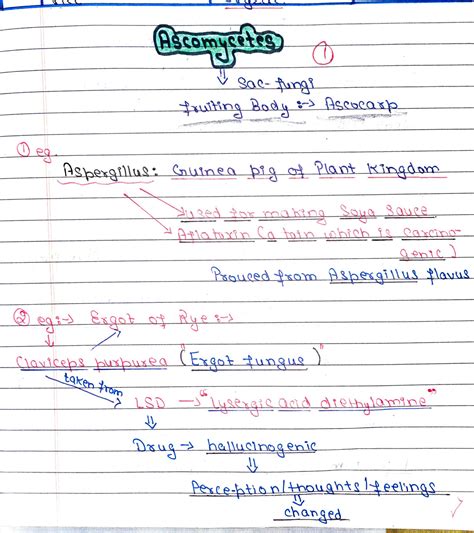 Ascomycetes
①
Sac-fungi
fruiting Body :-> Ascocarp
① eg.
Aspergillus: Guinea pig of Plant Kingdom
used for making Soya Sauce
Aflatoxin (a toxin which is carcino
genic)
Prouced from Aspergillus flavus
② eg:-> Ergot of Rye:->
Claviceps purpurea (Ergot fungus)"
taken from
LSD -> "Lysergic acid diethylamine"
Drug -> hallucinogenic
Perception/thoughts/feelings
changed